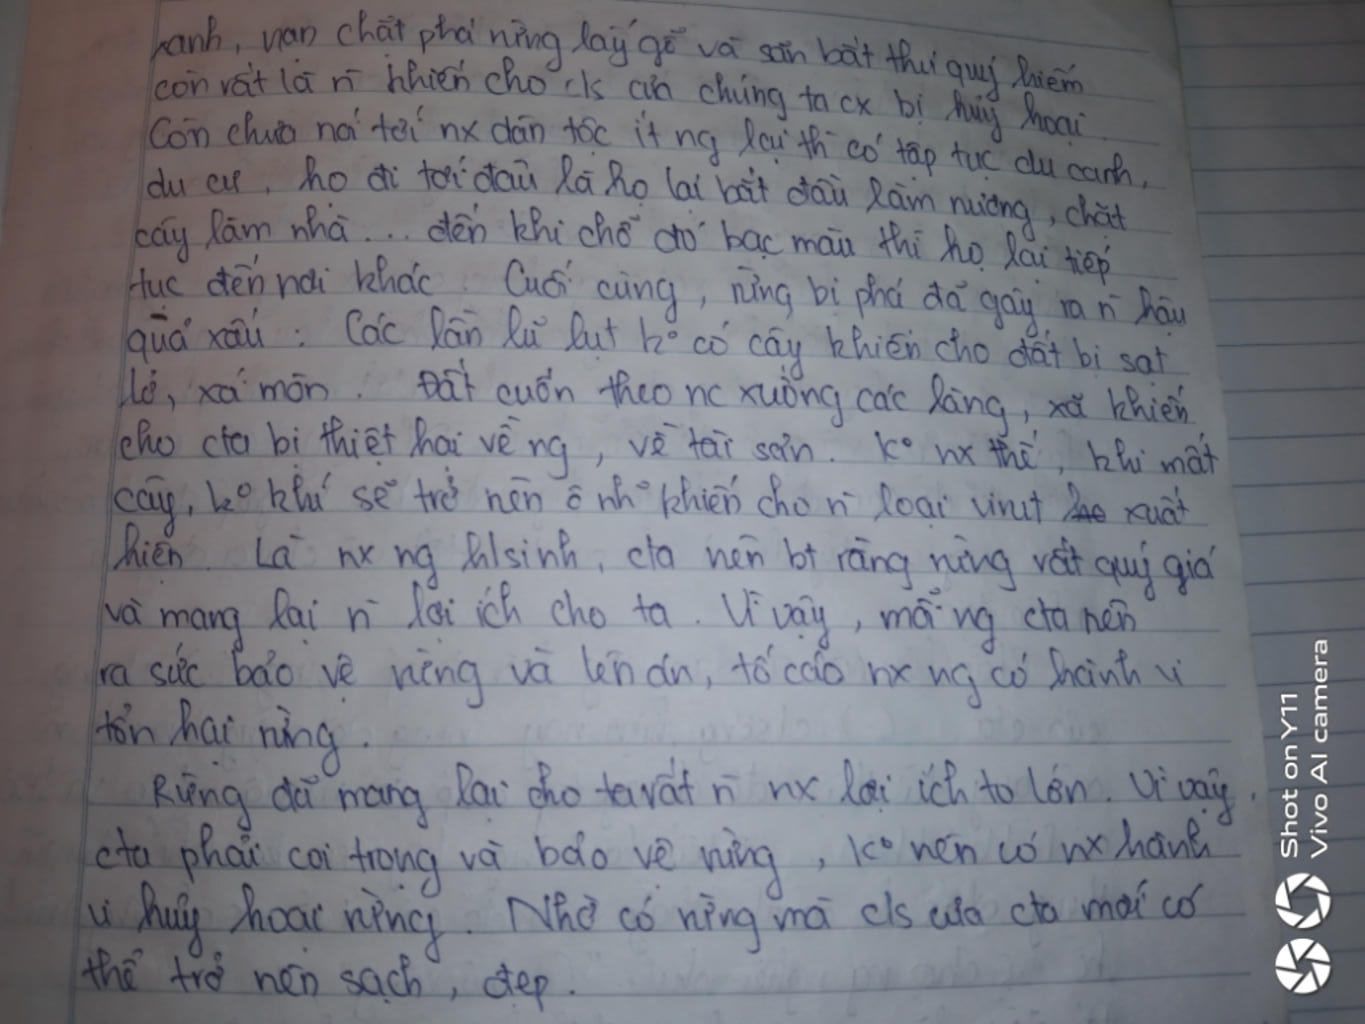 xanh, nạn chặt phá rừng lấy gỗ và săn bắt thú quý hiếm
còn rất là n̄ khiến cho c/s của chúng ta cx bị hủy hoại
Còn chưa nói tới nx dân tộc ít ng lại thì có tập tục du canh,
du cư, họ đi tới đâu là họ lại bắt đầu làm nương, chặt
cây làm nhà ... đến khi chỗ đó bạc màu thì họ lại tiếp
tục đến nơi khác. Cuối cùng, rừng bị phá đã gây ra n̄ hậu
quả xấu: Các lần lũ lụt kº có cây khiến cho đất bị sạt
lở, xá mòn. Đất cuốn theo nc xuống các làng, xã khiến
cho cta bị thiệt hại về ng, về tài sản. Kº nx thế, khi mất
cây, kº khí sẽ trở nên ô nhº khiến cho n̄ loại virut xuất
hiện. Là nx ng h/sinh, cta nên bt rằng rừng rất quý giá
và mang lại n̄ lợi ích cho ta. Vì vậy, mỗi ng cta nên
ra sức bảo vệ rừng và lên án, tố cáo nx ng có hành vi
tổn hại rừng.
Rừng đã mang lại cho ta rất n̄ nx lợi ích to lớn. Vì vậy,
cta phải coi trọng và bảo vệ rừng, kº nên có nx hành
vi hủy hoại rừng. Nhờ có rừng mà c/s của cta mới có
thể trở nên sạch, đẹp.
Shot on Y11
Vivo AI camera